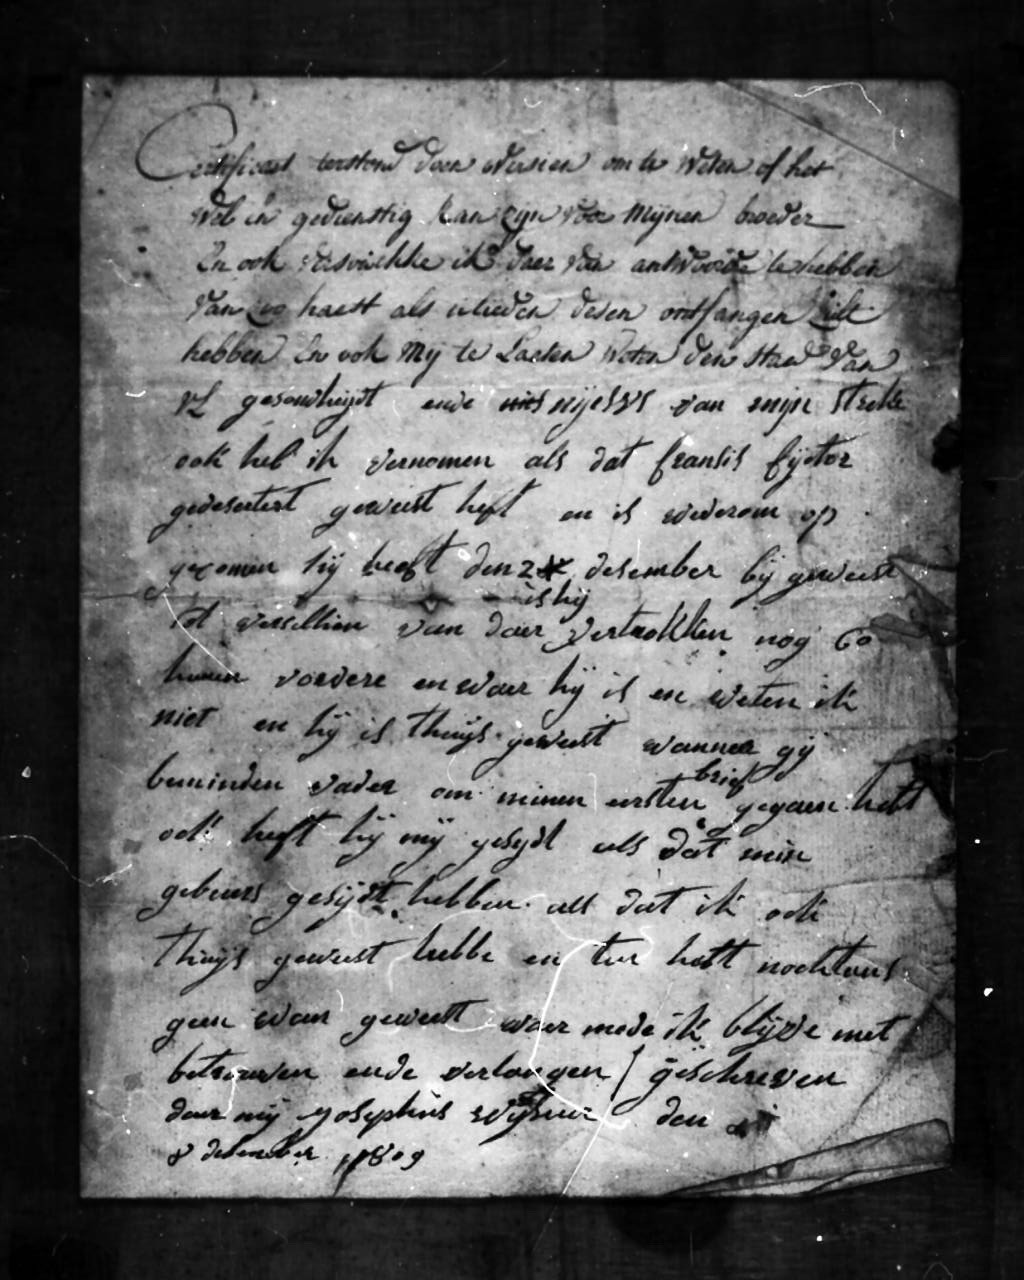 Certificaet terstond doen voersien om te weten of het
wel en gedienstig kan zijn voor mijnen broeder
En ook versoickke ik daer van antwoorde te hebben
van zo haest als ulieden desen ontfangen zult
hebben En ook mij te Laeten weten den staet van
UL gesondheijdt ende nijews van mijn streke
ook heb ik vernomen als dat fransis fijctor
gedesertert geweest heft en is wederom op
gecomen hij heeft den 2 desember bij geweest
is hij
tot versellien van daer vertrokken nog 60
huren voordere en waer hij is en weten ik
niet en hij is thuijs geweest wanneer gij
beminden vader om minen eersten brief gegaen hebt
ook heft hij mij gesijdt als dat min
gebuers gesijdt hebben als dat ik ook
thuijs geweest hebbe en ten hatt nochtans
geen waer geweest waer mede ik blijve met
betrouwen ende verlangen / geschreven
door mij yosephus den
8 desember 1809